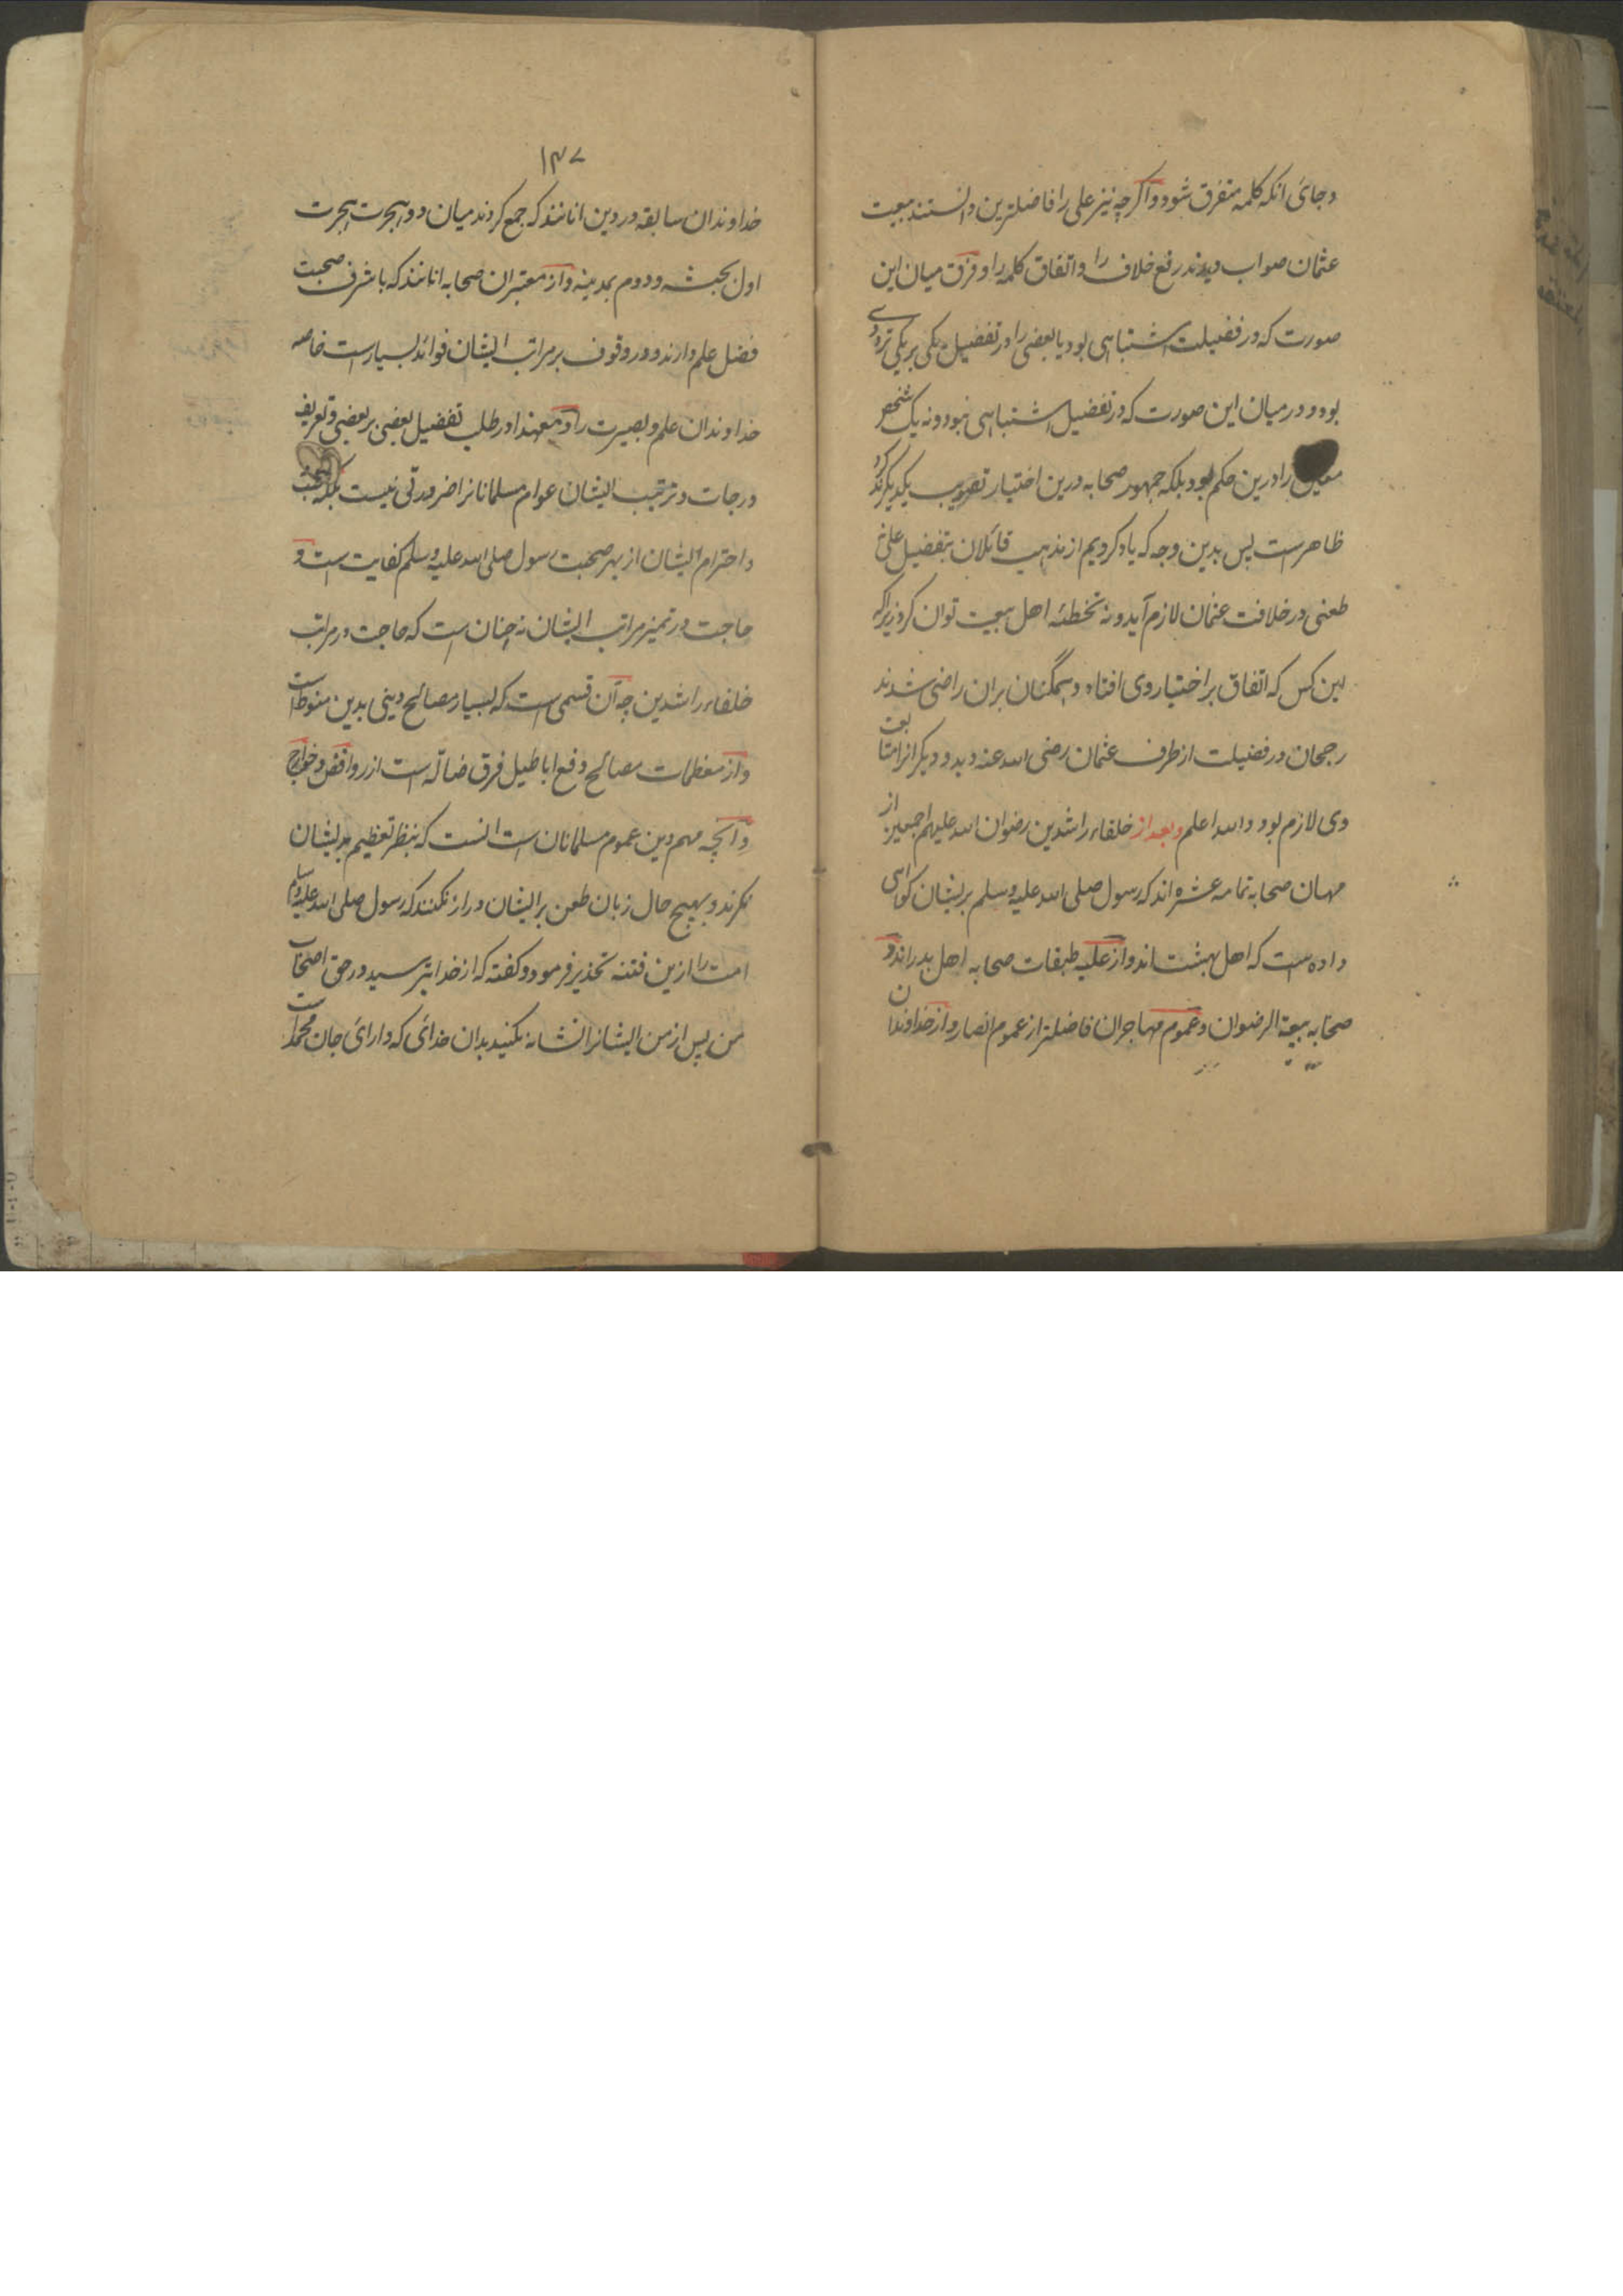 وجائی انکه کلمه متفرق شود واکرچه نیز علی را فاضلترین دانستند بیعت
عثمان صواب دیدند رفع خلاف را واتفاق کلمه را وفرق میان این
صورت که در فضیلت اشتباهی بود یا بعضی را در تفضیل یکی بر یکی ترددی
بود ودر میان این صورت که در تفضیل اشتباهی نبود ونه یک شخص
معین را درین حکم بود بلکه جمهور صحابه درین اختیار تصویب یکدیکر کردند
ظاهرست پس بدین وجه که یاد کردیم از مذهب قائلان بتفضیل علی نه
طعنی در خلافت عثمان لازم آید ونه تخطئه اهل بیعت توان کرد زیراکه
این کس که اتفاق بر اختیار وی افتاه وهمکنان بران راضی شدند
رجحان در فضیلت از طرف عثمان رضی الله عنه دید ودیکرانرا متابعت
وی لازم بود والله اعلم وبعد از خلفاء راشدین رضوان الله علیهم اجمعین از
مهان صحابه تمامه عشره اند که رسول صلی الله علیه وسلم بریشان کواهی
داده است که اهل بهشت اند واز علیه طبقات صحابه اهل بدر اند و
صحابه بیعة الرضوان وعموم مهاجران فاضلتر از عموم انصار واز خداوندان
۱۳۷
خداوندان سابقه در دین انانند که جمع کردند میان دو هجرت هجرت
اول بحبشه ودوم بمدینه واز معتبران صحابه انانند که با شرف صحبت
فضل علم دارند ودر وقوف بر مراتب ایشان فوائد بسیارست خاصه
خداوندان علم وبصیرت را ومعهذا در طلب تفضیل بعضی بر بعضی وتعریف
درجات وترتیب ایشان عوام مسلمانانرا ضرورتی نیست بلکه محبت
واحترام ایشان از بهر صحبت رسول صلی الله علیه وسلم کفایت است و
حاجت در تمیز مراتب ایشان نه چنان است که حاجت در مراتب
خلفاء راشدین چه آن قسمی است که بسیار مصالح دینی بدین منوط است
واز معظمات مصالح دفع اباطیل فرق ضالّه است از روافض وخوارج
وانچه مهم دین عموم مسلمانان است انست که بنظر تعظیم بدیشان
نکرند وبهیچ حال زبان طعن بر ایشان دراز نکنند که رسول صلی الله علیه وسلم
امت را ازین فتنه تحذیر فرمود وکفته که از خدا بترسید در حق اصحاب
من پس از من ایشانرا نشانه نکنید بدان خدائی که دارای جان محمد است